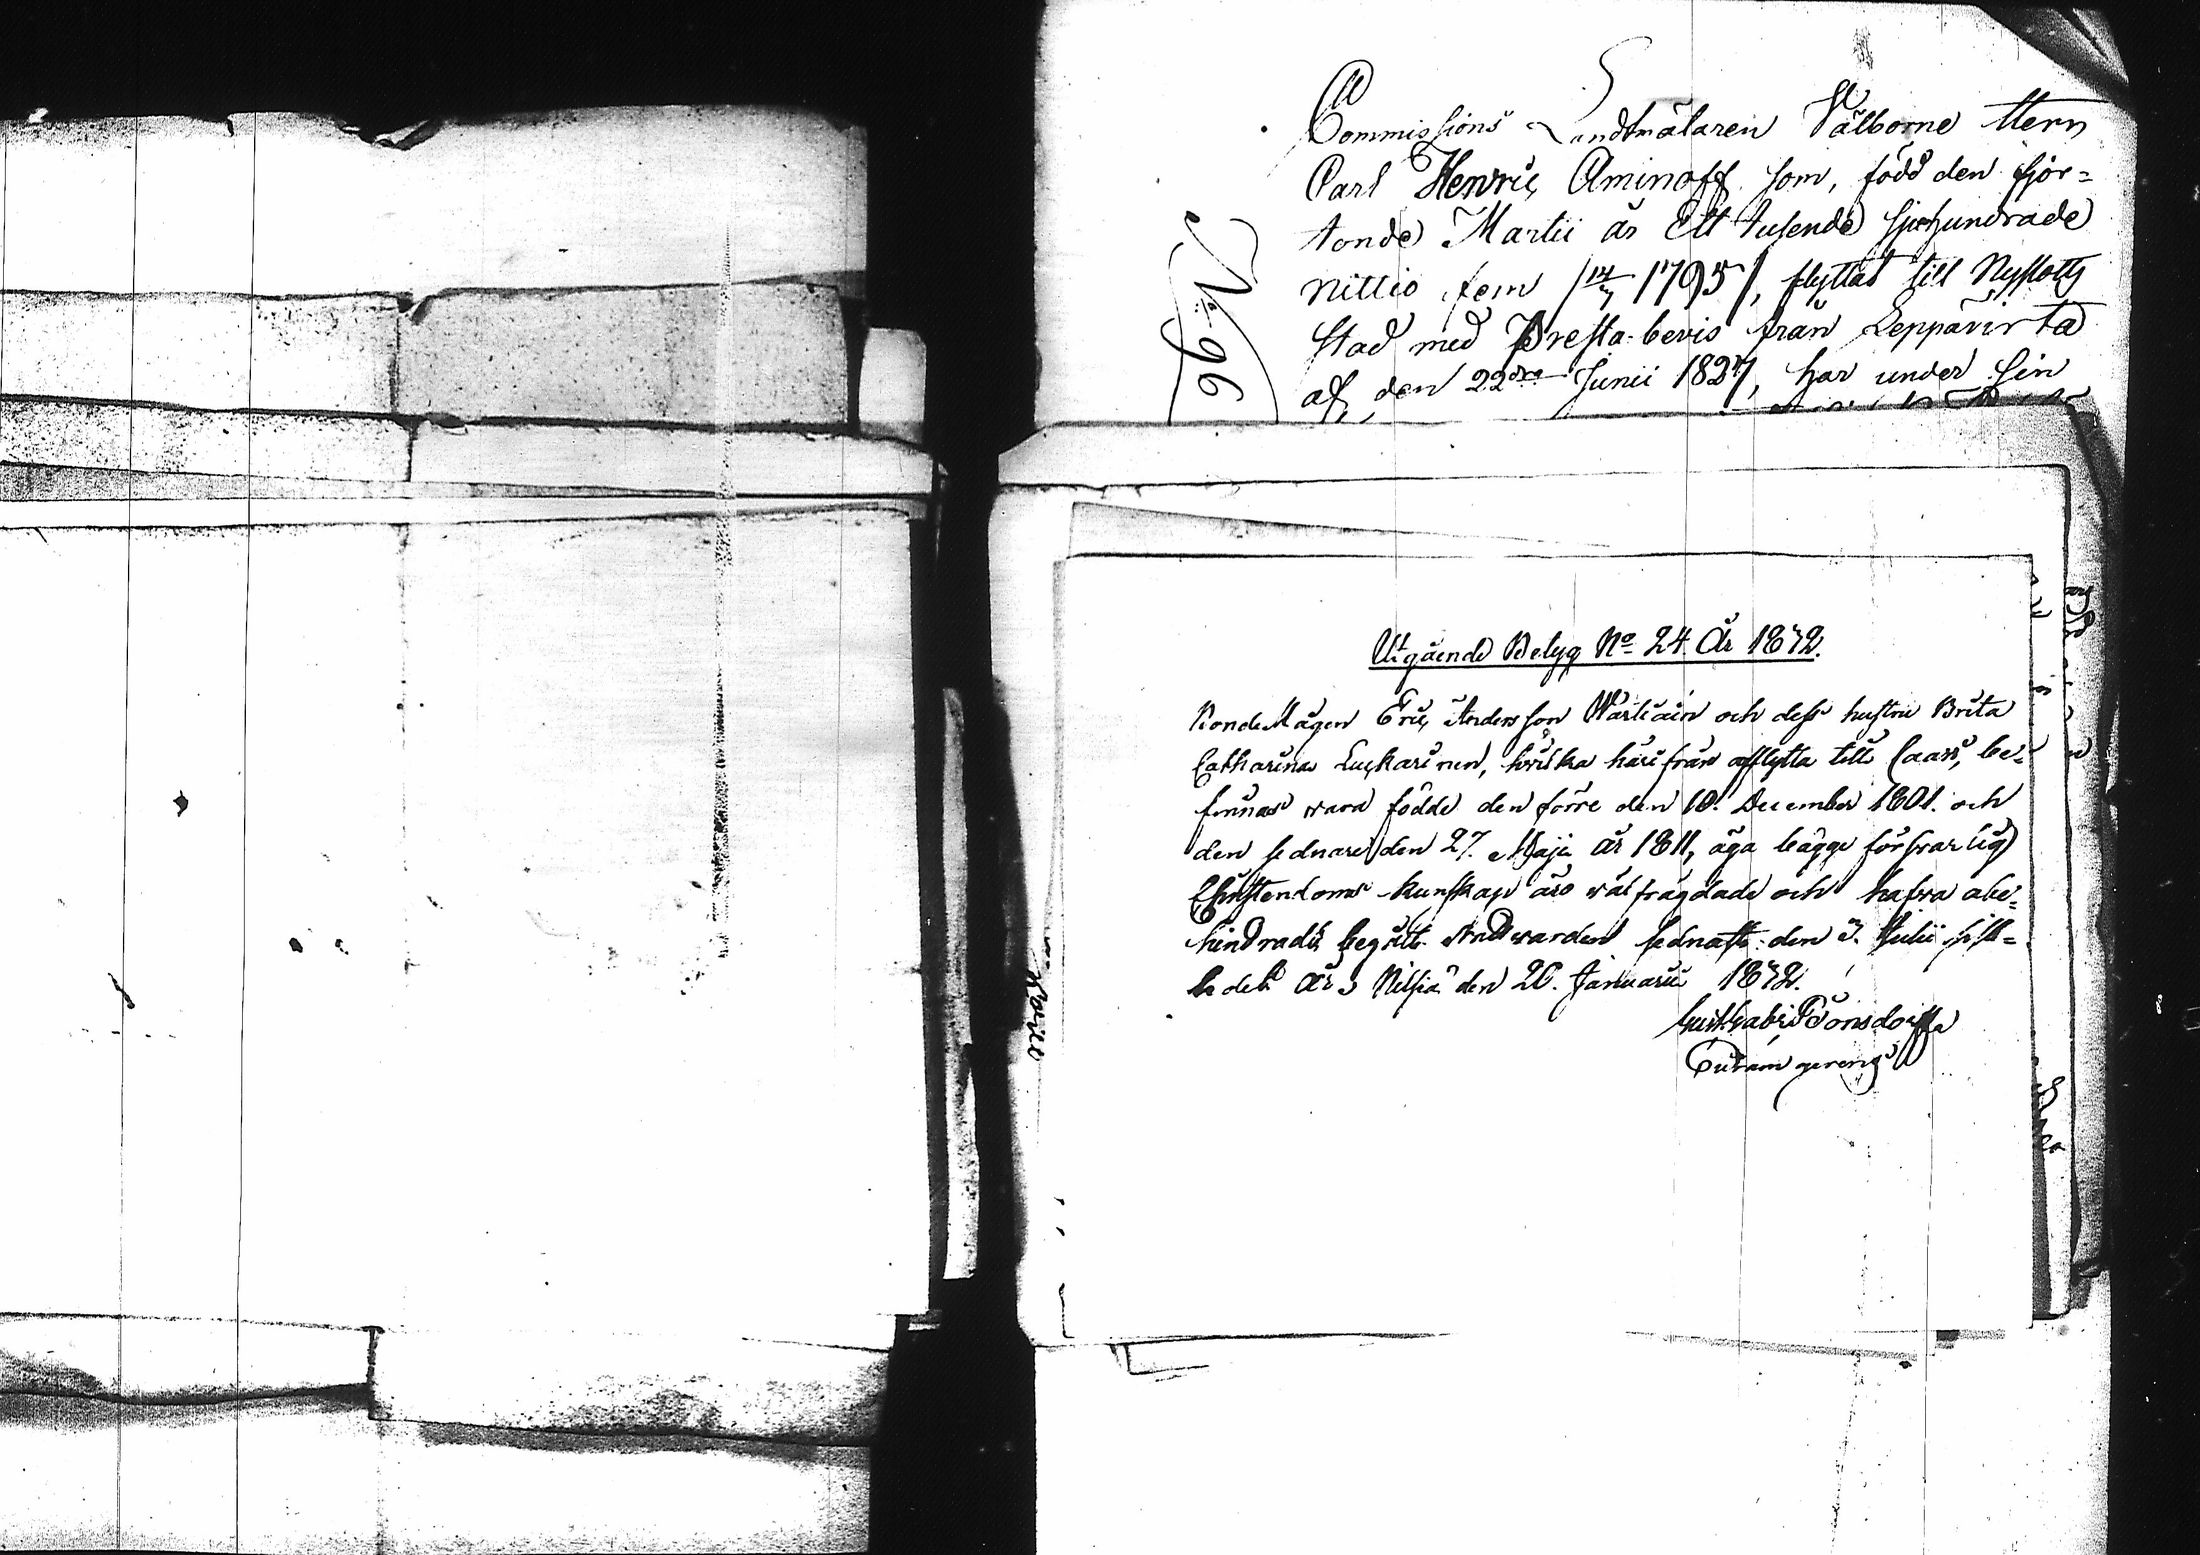 Commissions Landtmätaren Välborne Herr
Carl Henric Aminoff som, född den fjor=
tonde Martii år Ett tusende sjuhundrade
nittio fem /14/3 1795/, flyttat till Nyslotts
stad med Presta-bevis från Leppävirta
af den 22dra Junii 1827, har under sin
N:o 96
Utgående Belyg No 24. År 1832.
BondeMågen Eric Andersson Wartiain och dess hustru Brita
Catharina Luckarinen, hvilka härifrån afflytta till Caavi, be=
finnas wara födde den förre den 10. December 1801. och
den sednare den 27. Maji år 1811, äga bägge försvarlig
Christendoms-kunskap äro wälfrägdade och hafva obe=
hindradt begått Nattwarden sednast den 3. Julii sist=
ledet År; Nilsiä den 20. Januarii 1832.
Costdorff